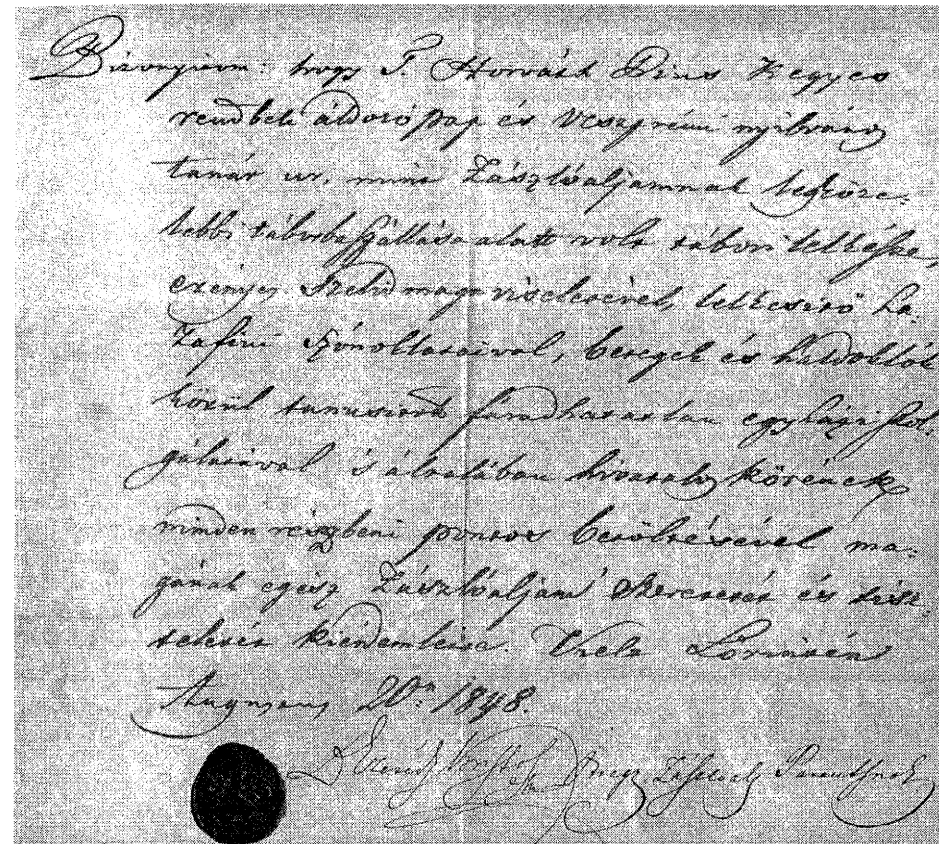 Bizonyitom: hogy T. Horváth Pius Kegyes
rendbeli áldozó pap és Veszprémi nyilvános
tanár ur, mint Zászlóaljamnak legköze-
lebbi táborba szállása alatt volt tábori lelkésze,
erényes szelid maga viseletével, lelkesitő ha-
zafiui szónoklataival, betegek és haldoklók
körül tanusitott fáradhatatlan egyházi szol-
gálatával 's átalában hivatalos körének
minden részbeni pontos betöltésével ma-
gának egész Zászlóaljam' szeretetét és tisz-
teletét kiérdemlette. Kelt Lörintén
Augustus 20n 1848.